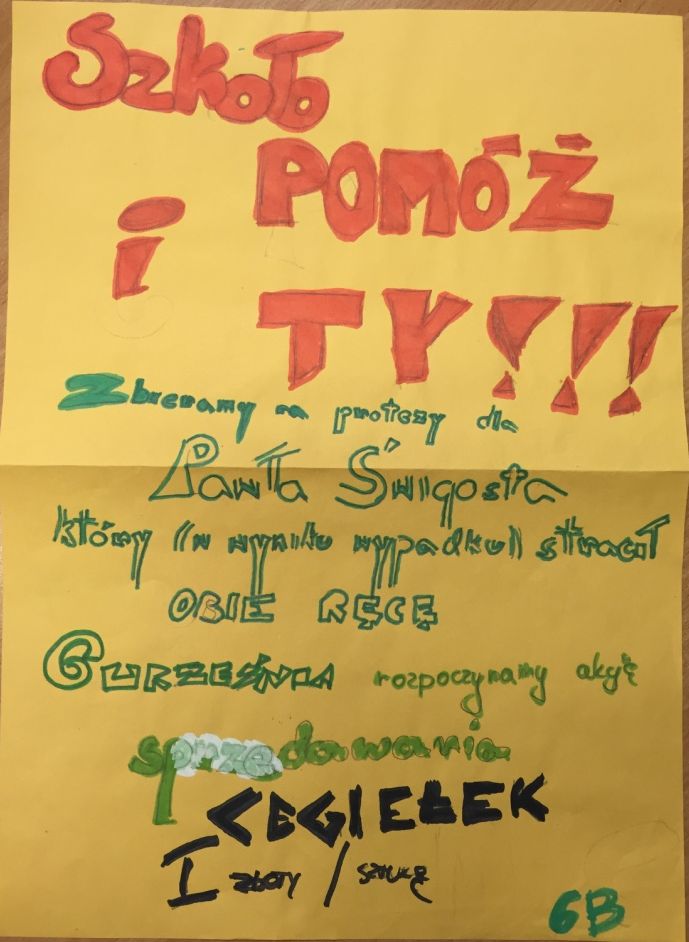 Szkoło
POMÓŻ
i
TY!!!
Zbieramy na protezy dla
Pawła Świgosta
który (w wyniku wypadku) stracił
OBIE RĘCĘ
6 WRZEŚNIA rozpoczynamy akcję
sprzedawania
CEGIEŁEK
1 złoty / sztukę
6B